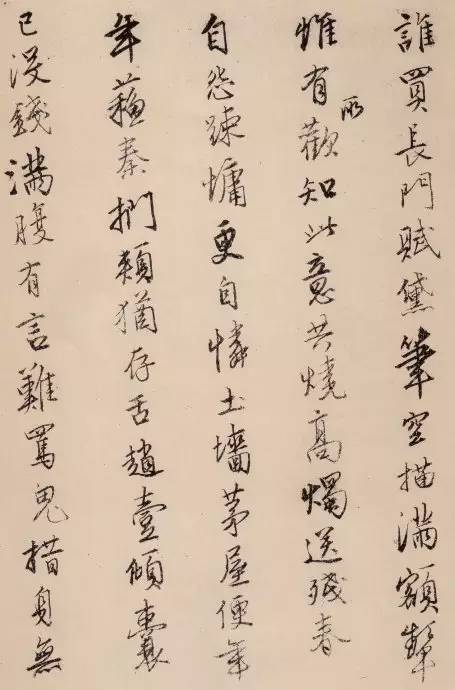 誰買長門賦黛筆空描滿額顰
惟有所歡知此意共燒高燭送殘春
自怨踈慵更自憐土墻茅屋便年
年蘇秦捫頰猶存舌趙壹傾囊
已沒錢滿腹有言難罵鬼措身無